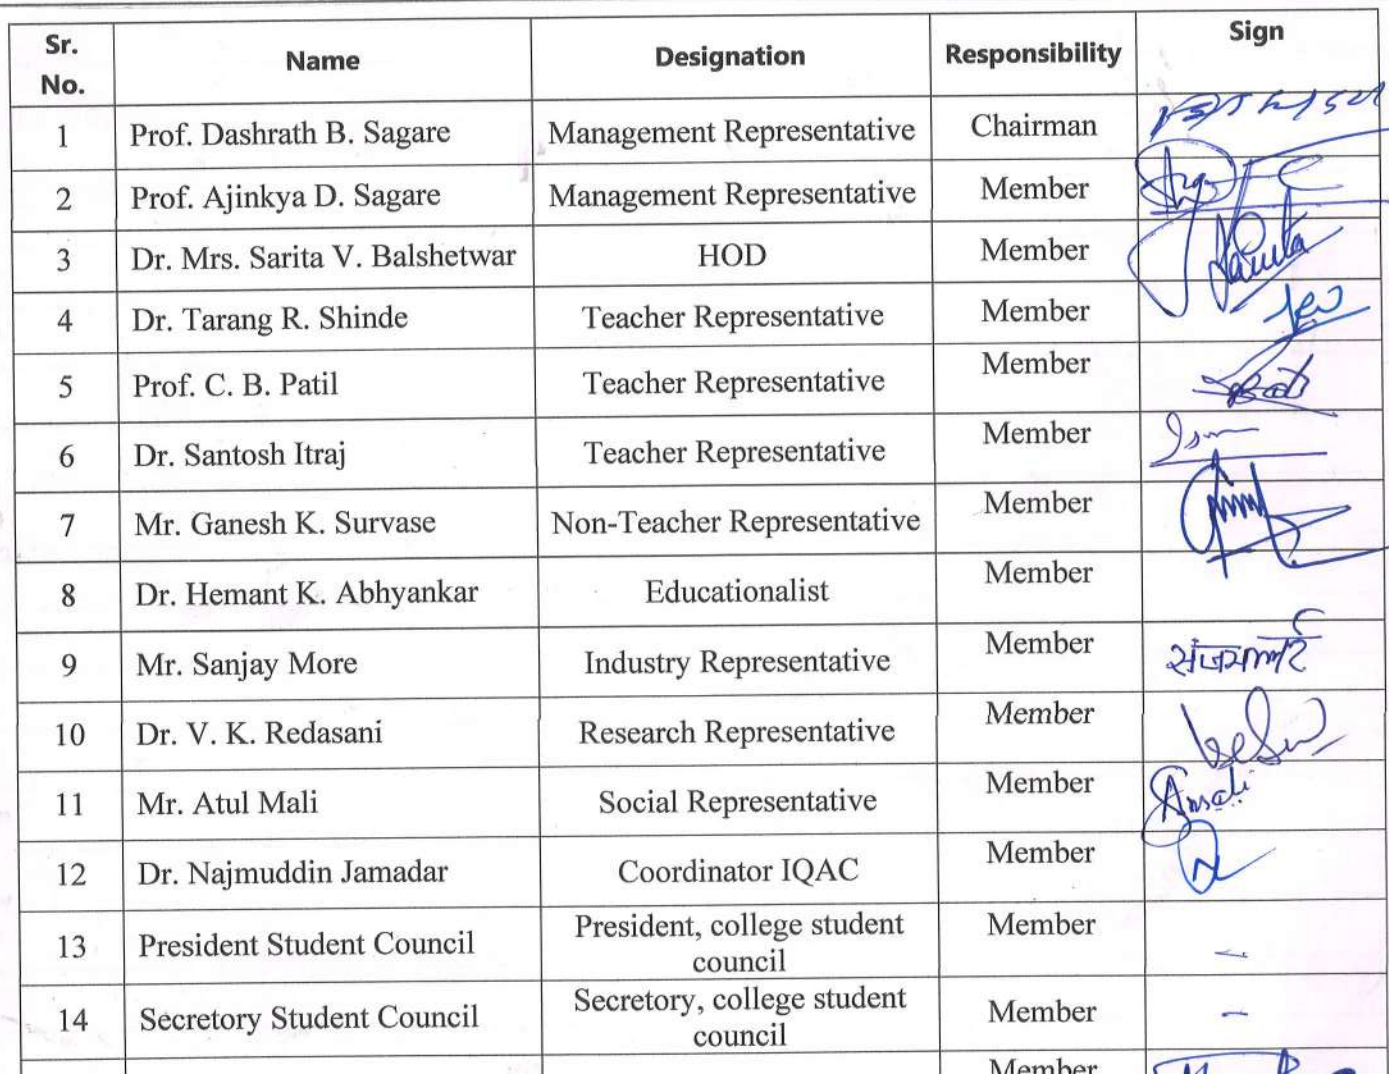 Sr. No. Name Designation Responsibility Sign
1 Prof. Dashrath B. Sagare Management Representative Chairman
2 Prof. Ajinkya D. Sagare Management Representative Member
3 Dr. Mrs. Sarita V. Balshetwar HOD Member
4 Dr. Tarang R. Shinde Teacher Representative Member
5 Prof. C. B. Patil Teacher Representative Member
6 Dr. Santosh Itraj Teacher Representative Member
7 Mr. Ganesh K. Survase Non-Teacher Representative Member
8 Dr. Hemant K. Abhyankar Educationalist Member
9 Mr. Sanjay More Industry Representative Member
10 Dr. V. K. Redasani Research Representative Member
11 Mr. Atul Mali Social Representative Member
12 Dr. Najmuddin Jamadar Coordinator IQAC Member
13 President Student Council President, college student council Member -
14 Secretory Student Council Secretory, college student council Member -
Member